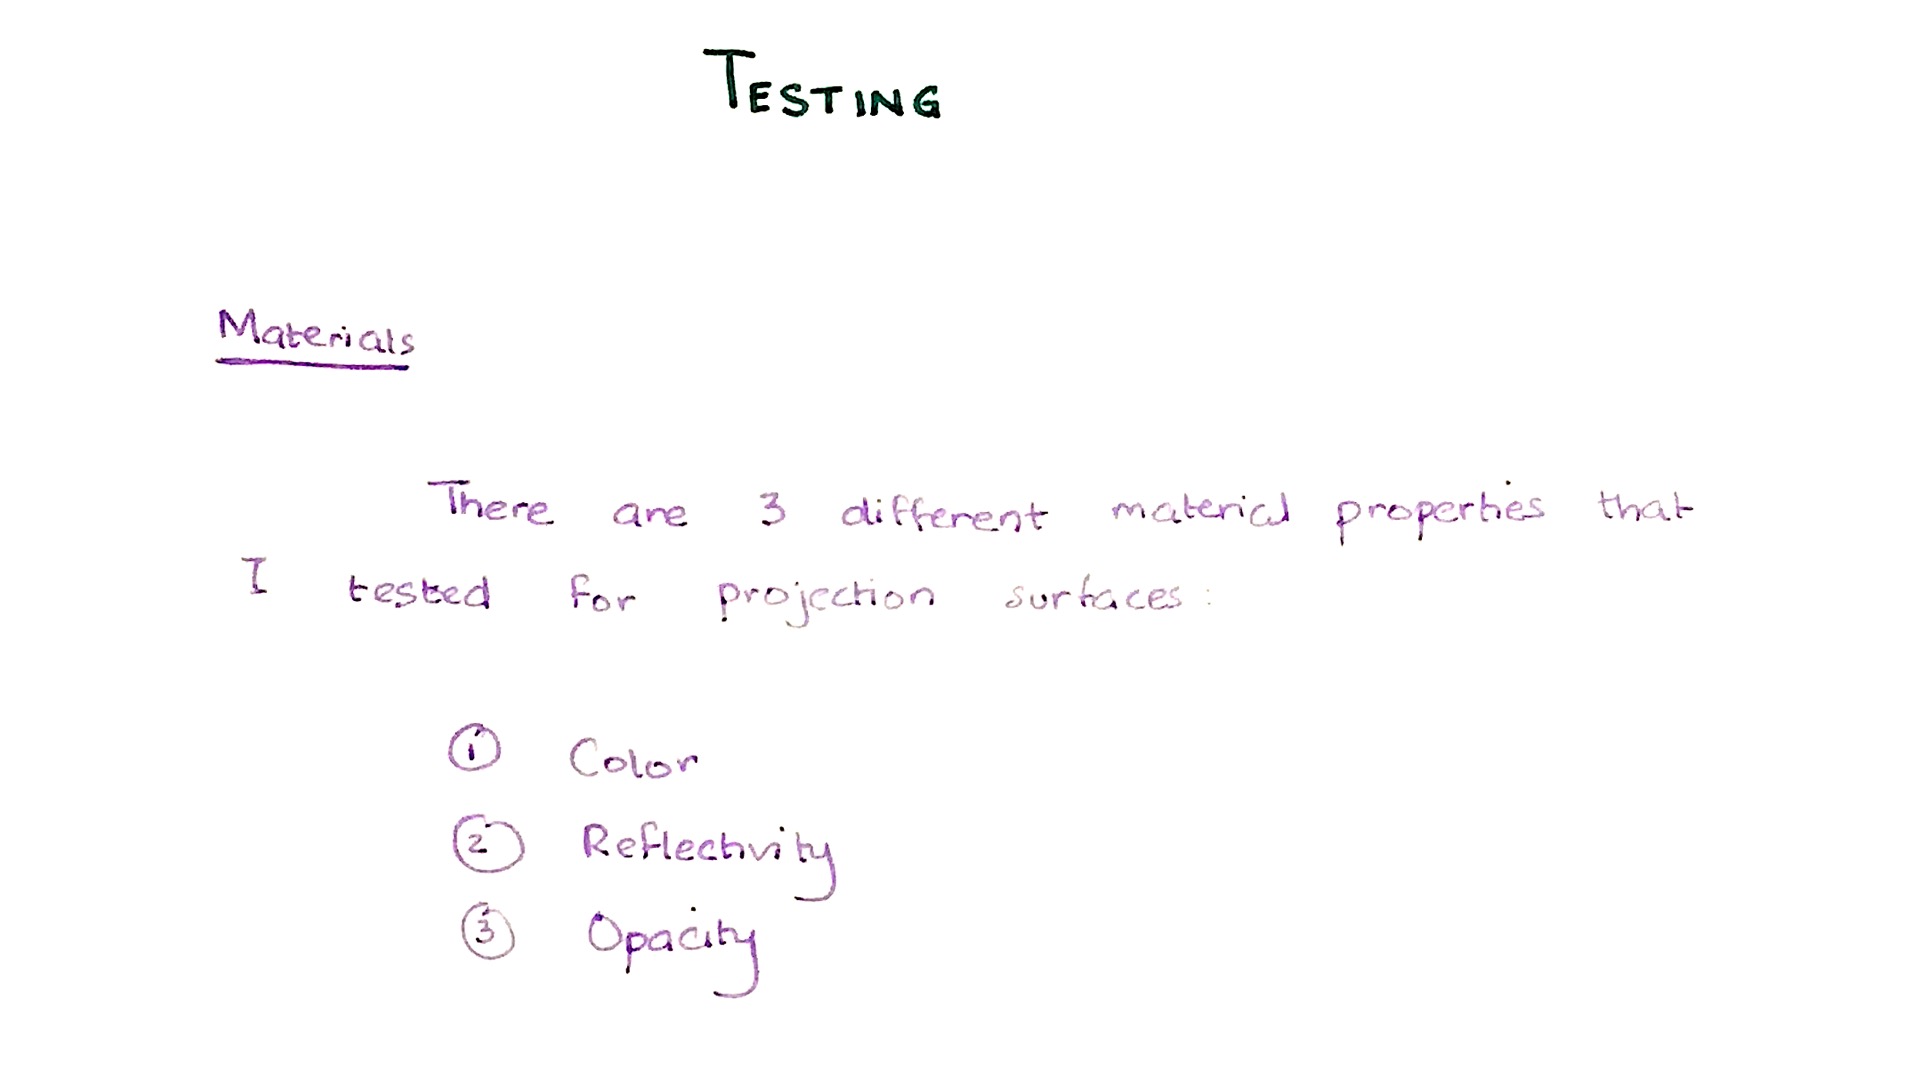 TESTING
Materials
There are 3 different material properties that
I tested for projection surfaces:
① Color
② Reflectivity
③ Opacity